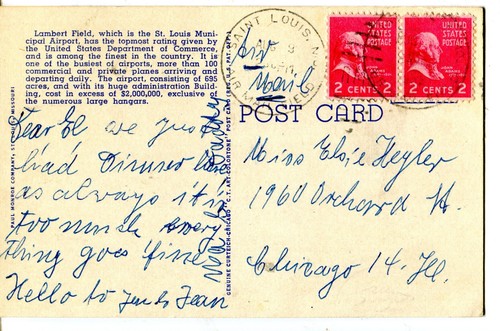 Lambert Field, which is the St. Louis Muni-
cipal Airport, has the topmost rating given by
the United States Department of Commerce,
and is among the finest in the country. It is
one of the busiest of airports, more than 100
commercial and private planes arriving and
departing daily. The airport, consisting of 695
acres, and with its huge administration Build-
ing, cost in excess of $2,000,000, exclusive of
the numerous large hangars.
Dear El we just
had Dinner here
as always it is
too much every
thing goes fine
Hello to
Jean
PAUL MONROE COMPANY, ST. LOUIS, MISSOURI
GENUINE CURTEICH-CHICAGO "C.T. ART-COLORTONE" POST CARD
SAINT LOUIS,
Air
Mail
2 CENTS 2
2 CENTS 2
POST CARD
Miss Elsie Hegler
1960 Orchard St.
Chicago 14. Ill.